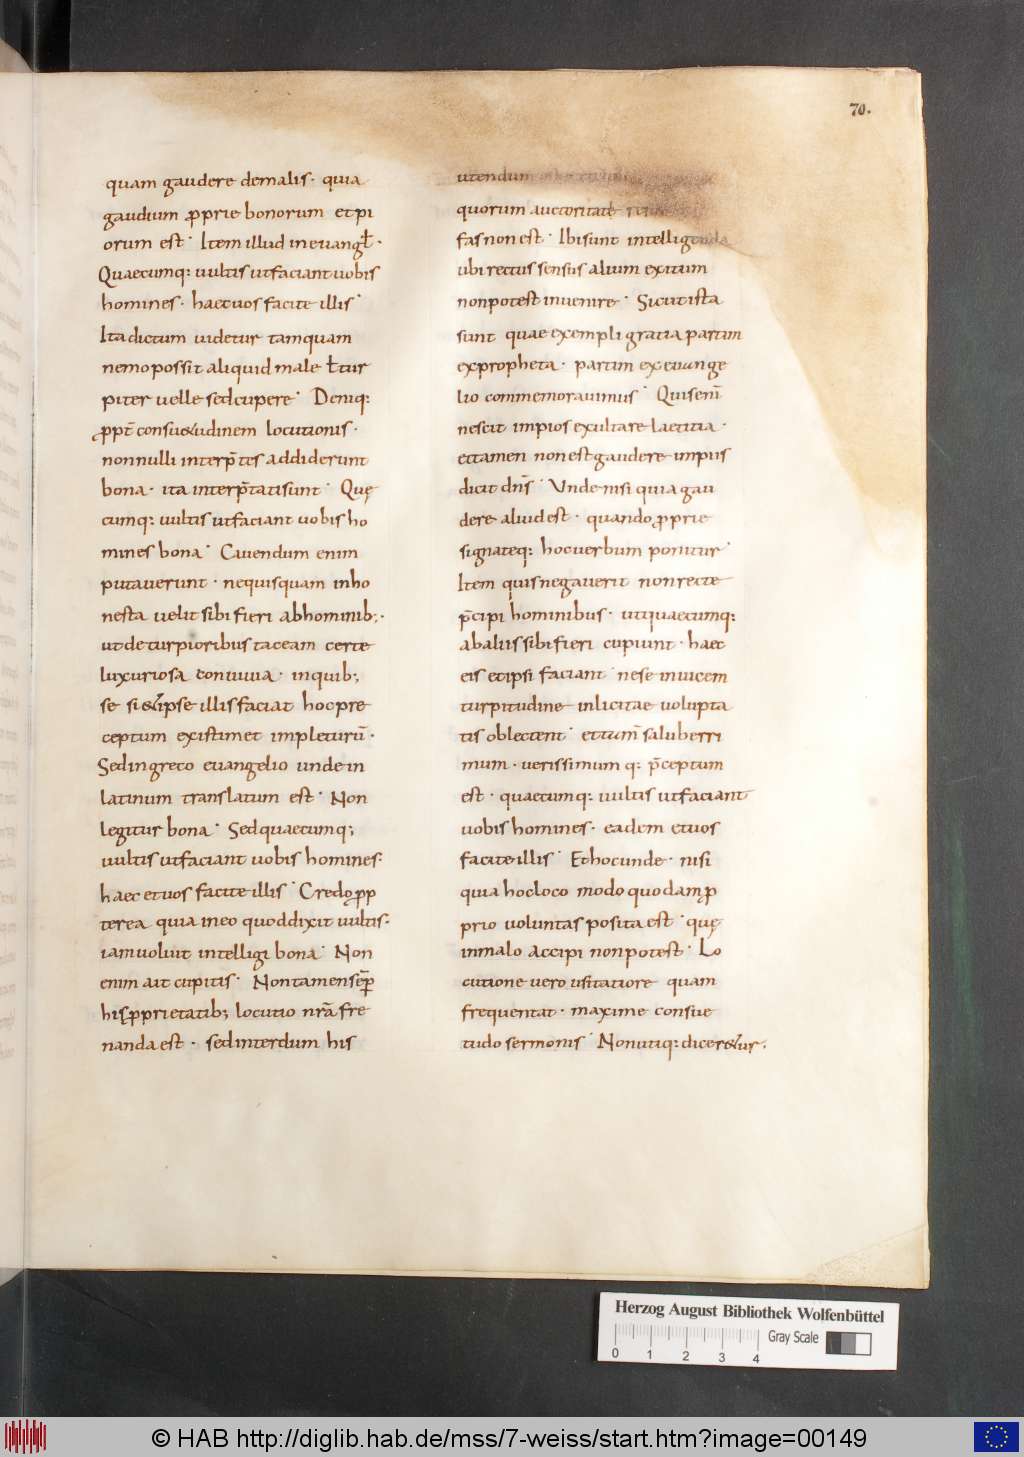 70.
quam gaudere demalis· quia
gaudium ꝓprie bonorum et pi
orum est· Item illud in euangł·
Quaecumq: uultis ut faciant uobis
homines· haec uos facite illis·
Ita dictum uidetur tamquam
nemo possit aliquid male ł tur
piter uelle sed cupere· Deniq:
ꝓpt̄ consu&udinem locutionis·
nonnulli interp̄tes addiderunt
bona· ita interp̄tati sunt· Quę
cumq: uultis ut faciant uobis ho
mines bona· Cauendum enim
putauerunt· nequisquam inho
nesta uelit sibi fieri ab hominib;·
ut de turpioribus taceam certe
luxuriosa conuiuia· in quib;
se si &ipse illis faciat hoc pre
ceptum existimet impleturū·
Sed in greco euangelio unde in
latinum translatum est· Non
legitur bona· Sed quaecumq;
uultis ut faciant uobis homines·
haec et uos facite illis· Credo ꝓp
terea quia in eo quod dixit uultis·
iam uoluit intellegi bona· Non
enim ait cupitis· Non tamen semꝑ
his ꝓprietatib; locutio nr̄a fre
nanda est· sed interdum his
utendum
quorum auctoritate
fas non est· Ibi sunt intelligenda
ubi rectus sensus alium exitum
non potest inuenire· Sicut ista
sunt quae exempli gratia partim
ex propheta· partim ex euange
lio commemorauimus· Quis enī
nescit impios exultare laetitia·
et tamen non est gaudere impiis
dicit dn̄s· Unde nisi quia gau
dere aliud est· quando ꝓprie
signateq: hoc uerbum ponitur·
Item quis negauerit non recte
p̄cipi hominibus· ut quaecumq:
ab aliis sibi fieri cupiunt· haec
eis et ipsi faciant· ne se inuicem
turpitudine inlicitae uolupta
tis oblectent· et tum̄ saluberri
mum· uerissimumq: p̄ceptum
est· quaecumq: uultis ut faciant
uobis homines· eadem et uos
facite illis· Et hoc unde· nisi
quia hoc loco modo quodam ꝓ
prio uoluntas posita est· quę
in malo accipi non potest· Lo
cutione uero usitatiore quam
frequentat· maxime consue
tudo sermonis· Non utiq: dicer&ur·
Herzog August Bibliothek Wolfenbüttel
Gray Scale
0 1 2 3 4
© HAB http://diglib.hab.de/mss/7-weiss/start.htm?image=00149